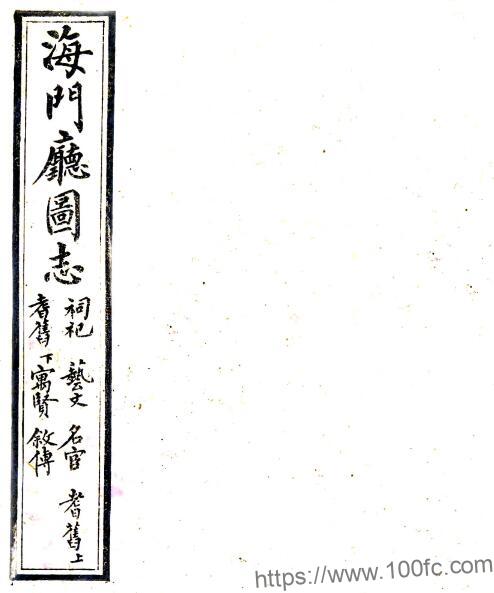 海門廳圖志
祠祀 藝文 名宦 耆舊上
耆舊下 寓賢 敘傳
https://www.100fc.com